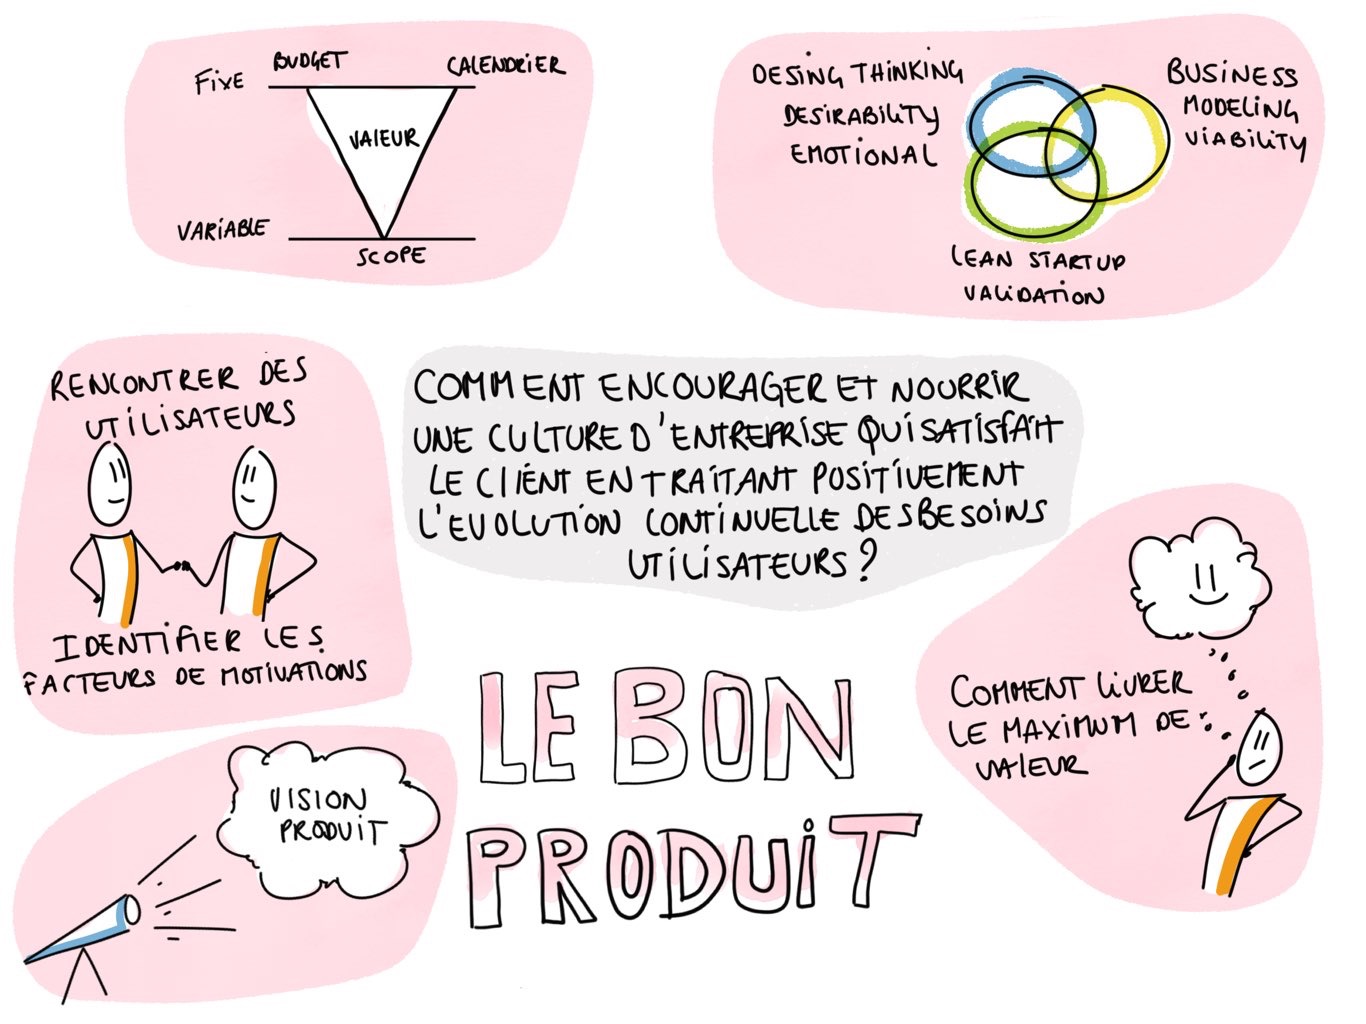 BUDGET
CALENDRIER
FIXE
VALEUR
VARIABLE
SCOPE
DESING THINKING
DESIRABILITY
EMOTIONAL
BUSINESS
MODELING
VIABILITY
LEAN STARTUP
VALIDATION
RENCONTRER DES
UTILISATEURS
IDENTIFIER LES
FACTEURS DE MOTIVATIONS
COMMENT ENCOURAGER ET NOURRIR
UNE CULTURE D'ENTREPRISE QUI SATISFAIT
LE CLIENT EN TRAITANT POSITIVEMENT
L'EVOLUTION CONTINUELLE DES BESOINS
UTILISATEURS ?
COMMENT LIVRER
LE MAXIMUM DE
VALEUR
VISION
PRODUIT
LE BON
PRODUIT